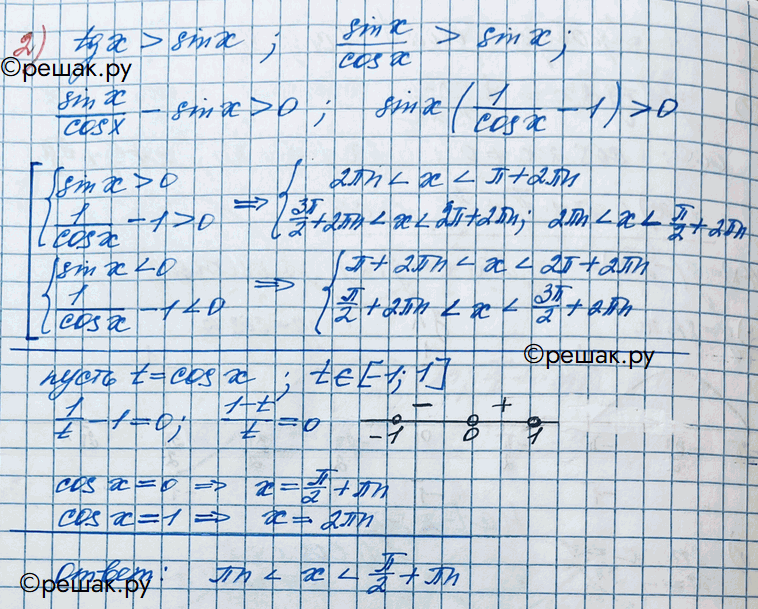 2) tgx > sinx ; sinx/cosx > sinx;
©решак.ру
sinx/cosx - sinx > 0 ; sinx(1/cosx - 1) > 0
[ { sinx > 0 ⇒ { 2πn < x < π + 2πn
1/cosx - 1 > 0 3π/2 + 2πn < x < 2π + 2πn; 2πn < x < π/2 + 2πn
{ sinx < 0 ⇒ { π + 2πn < x < 2π + 2πn
1/cosx - 1 < 0 π/2 + 2πn < x < 3π/2 + 2πn
©решак.ру
пусть t = cosx ; t ∈ [-1; 1]
1/t - 1 = 0; (1-t)/t = 0 - +
-1 0 1
cosx = 0 ⇒ x = π/2 + πn
cosx = 1 ⇒ x = 2πn
Ответ: πn < x < π/2 + πn
©решак.ру